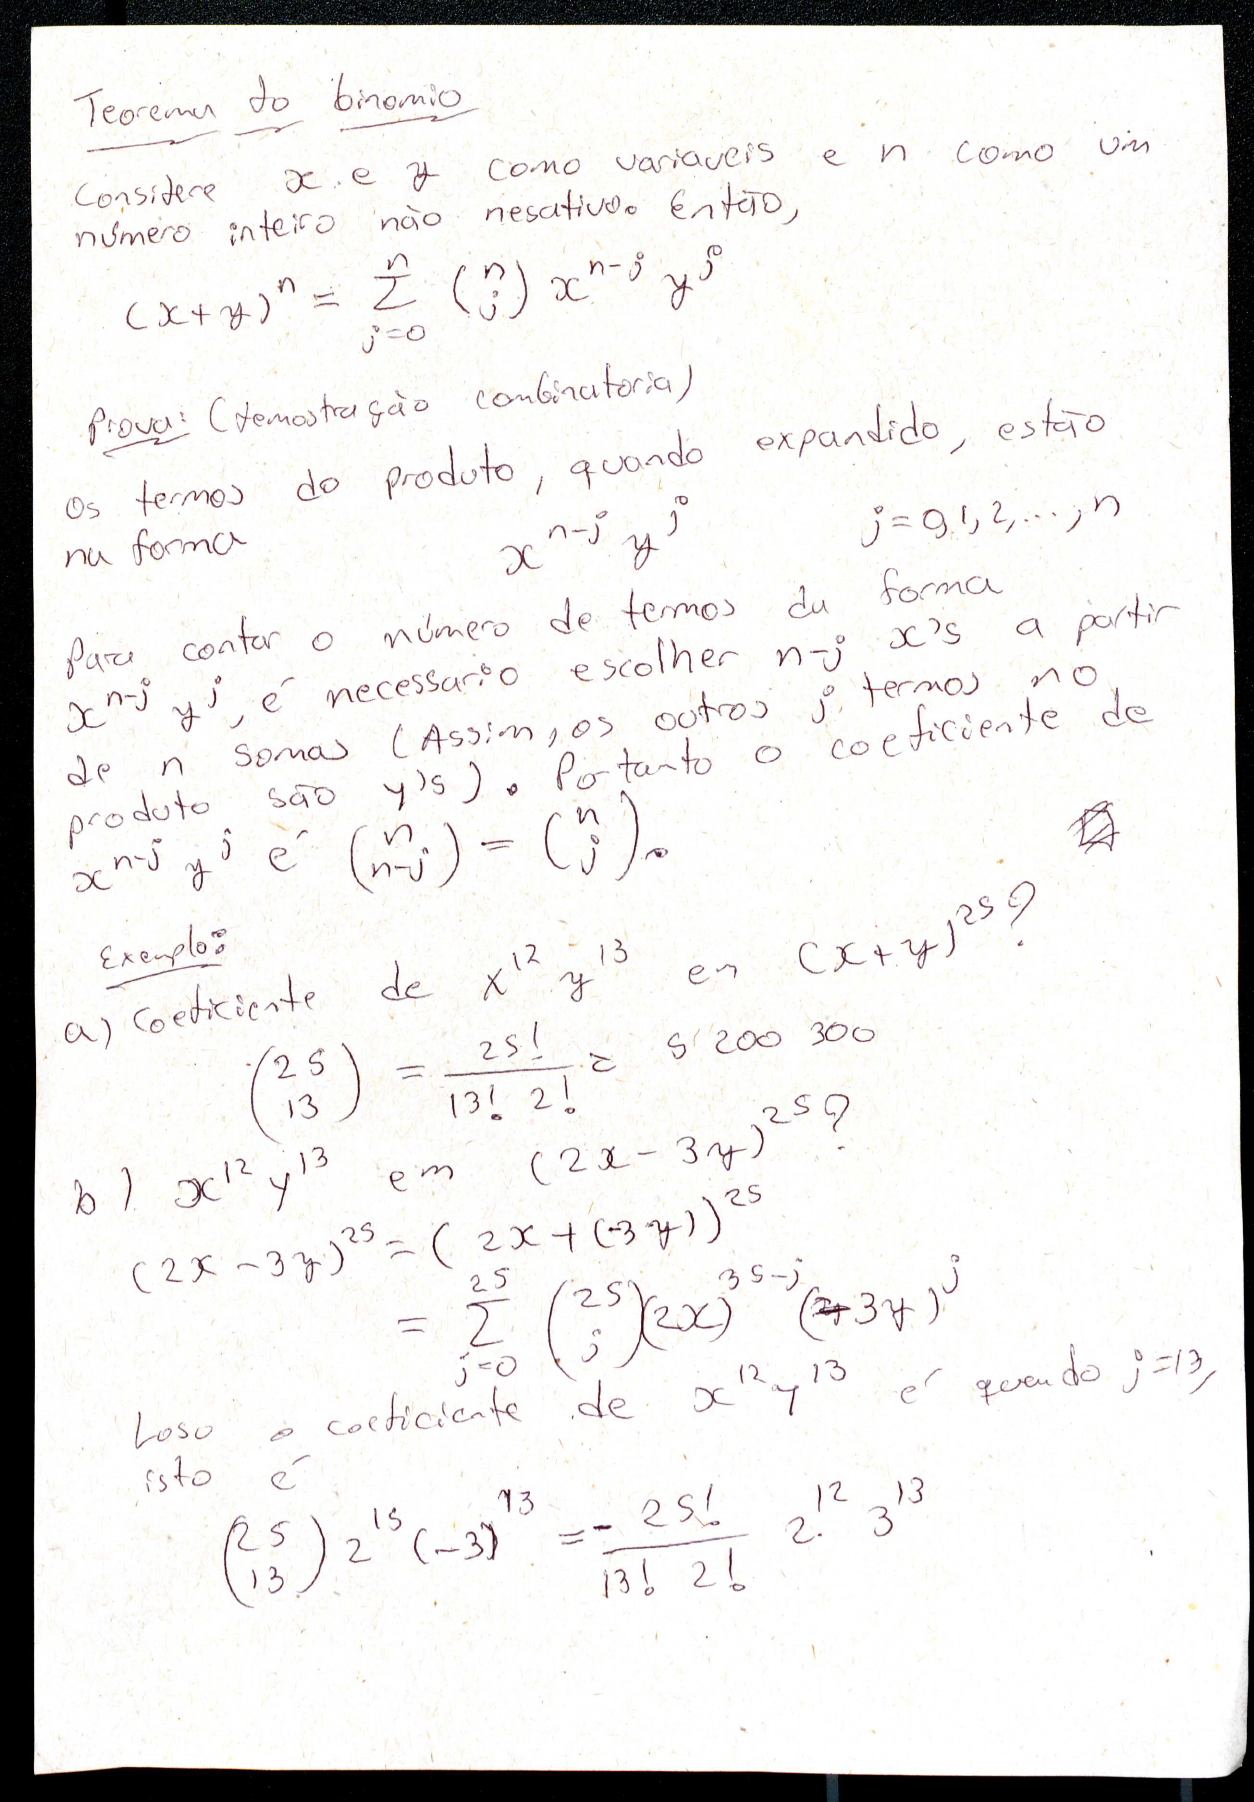 Teorema do binomio
Considere x e y como variaveis e n como um
número inteiro não negativo. Então,
(x+y)^n = \sum_{j=0}^{n} \binom{n}{j} x^{n-j} y^j
Prova: (demostração combinatoria)
Os termos do produto, quando expandido, estão
na forma x^{n-j} y^j j=0,1,2,...,n
Para contar o número de termos da forma
x^{n-j} y^j, é necessario escolher n-j x's a partir
de n somas (Assim, os outros j termos no
produto são y's). Portanto o coeficiente de
x^{n-j} y^j é \binom{n}{n-j} = \binom{n}{j}.
Exemplo:
a) Coeficiente de x^{12} y^{13} en (x+y)^{25}?
\binom{25}{13} = \frac{25!}{13! 2!} = 5 200 300
b) x^{12} y^{13} em (2x-3y)^{25}?
(2x-3y)^{25} = (2x+(-3y))^{25}
= \sum_{j=0}^{25} \binom{25}{j} (2x)^{35-j} (-3y)^j
Logo o coeficiente de x^{12} y^{13} é quando j=13,
isto é
\binom{25}{13} 2^{15} (-3)^{13} = - \frac{25!}{13! 2!} 2^{12} 3^{13}